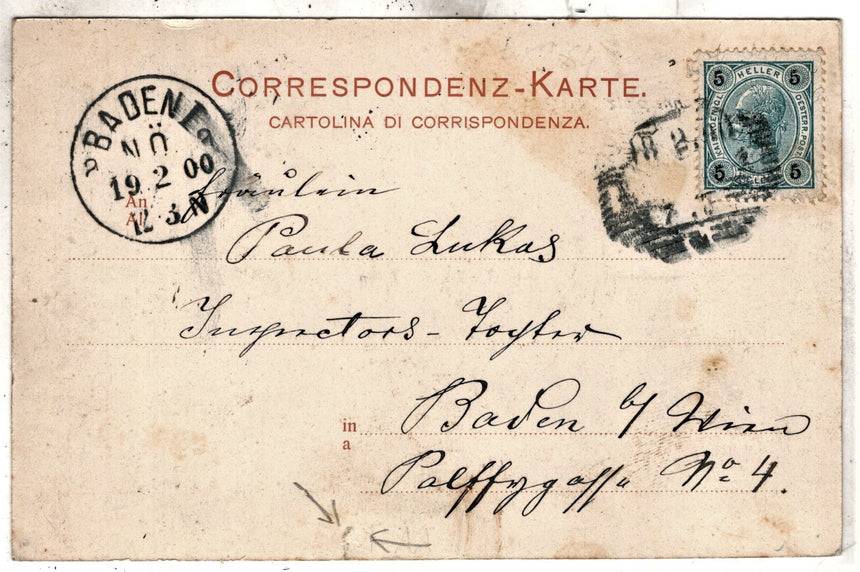 CORRESPONDENZ-KARTE.
CARTOLINA DI CORRISPONDENZA.
5 HELLER 5
5 5
BADEN
NÖ
19 2 00
12 3 N
An
Fräulein
Paula Lukas
Inspectors-Tochter
in Baden b/ Wien
a
Palffygasse No 4.